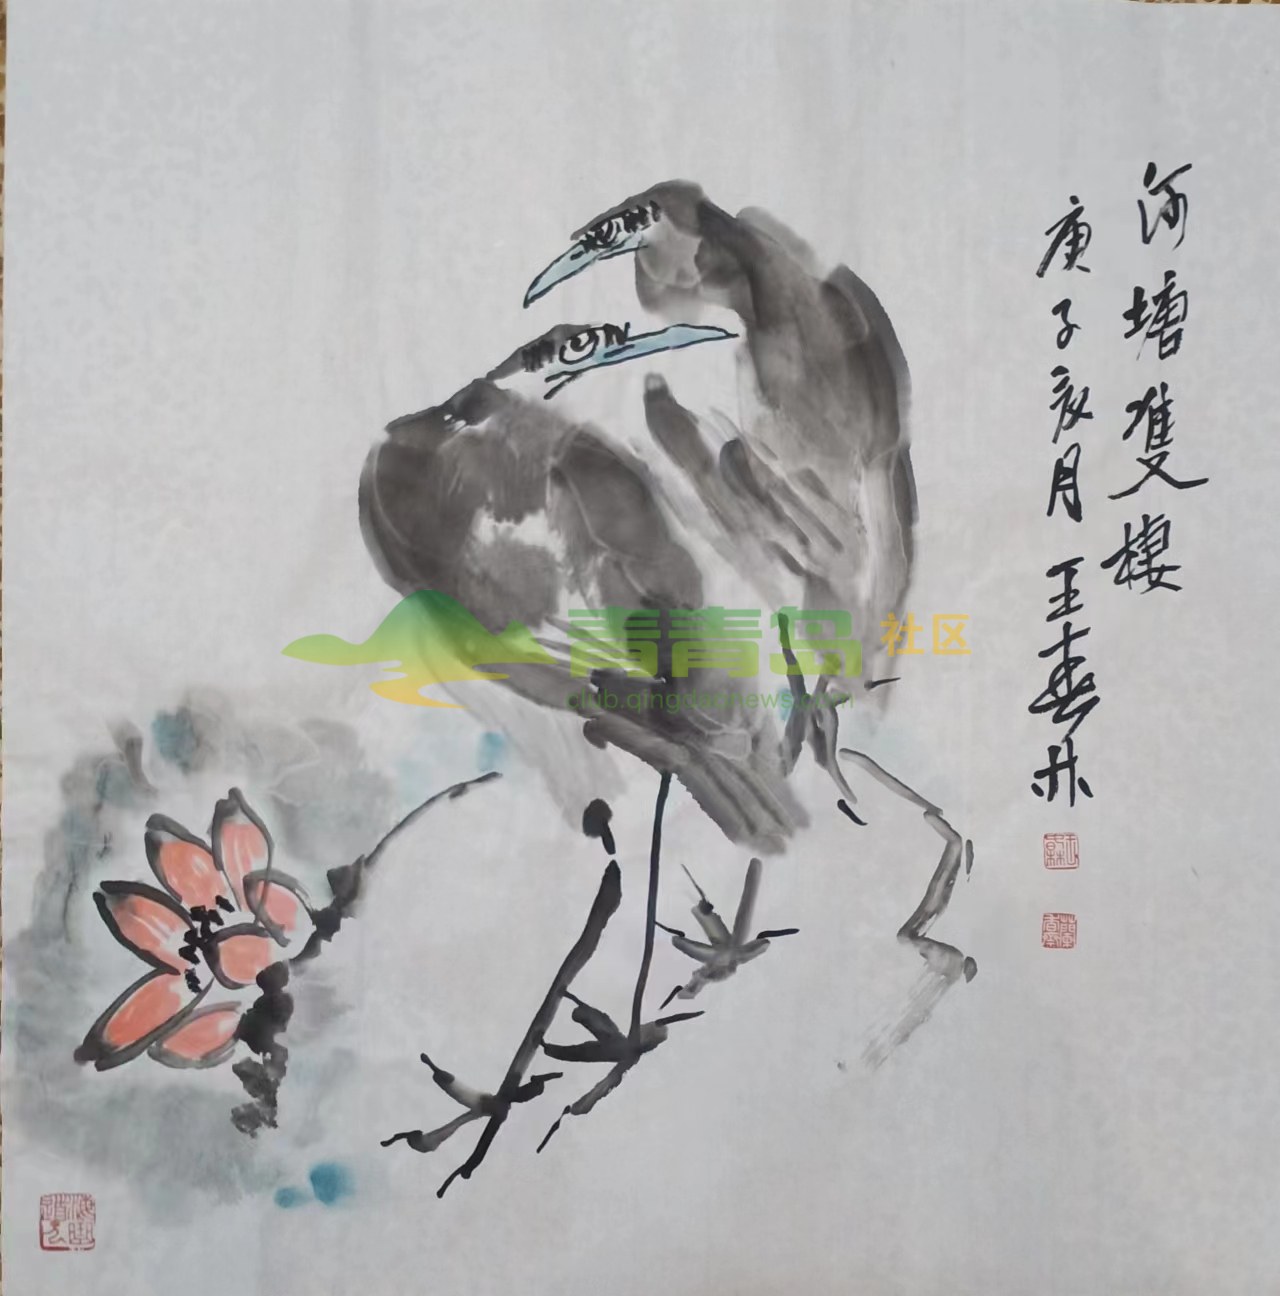 河塘雙棲
庚子亥月 王春林
青青岛社区
club.qingdaonews.com